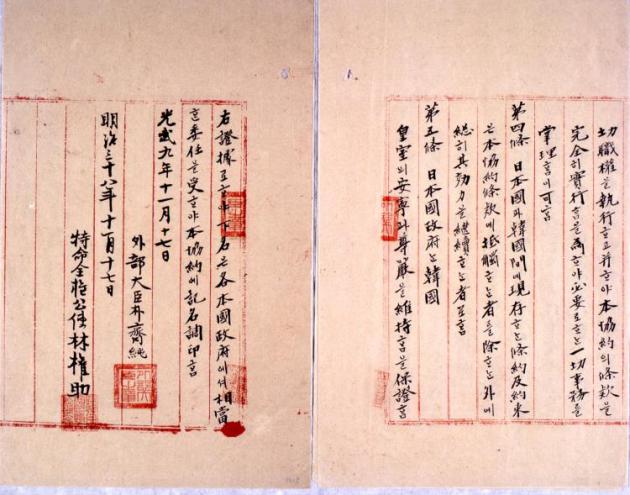 切職權을執行하고并하야本協約의條欵을
完全히實行함을爲하야必要로하는一切事務를
掌理홈이可홈
第四條 日本國과韓國間에現存하는條約及約束
은本協約條欵에抵觸하는者를除하는外에
總히其効力을繼續하는者로홈
第五條 日本國政府는韓國
皇室의安寧과尊嚴을維持홈을保證홈
右證據로하야下名은各本國政府에셔相當
한委任을受하야本協約에記名調印홈
光武九年十一月十七日
外部大臣朴齊純
明治三十八年十一月十七日
特命全權公使林權助